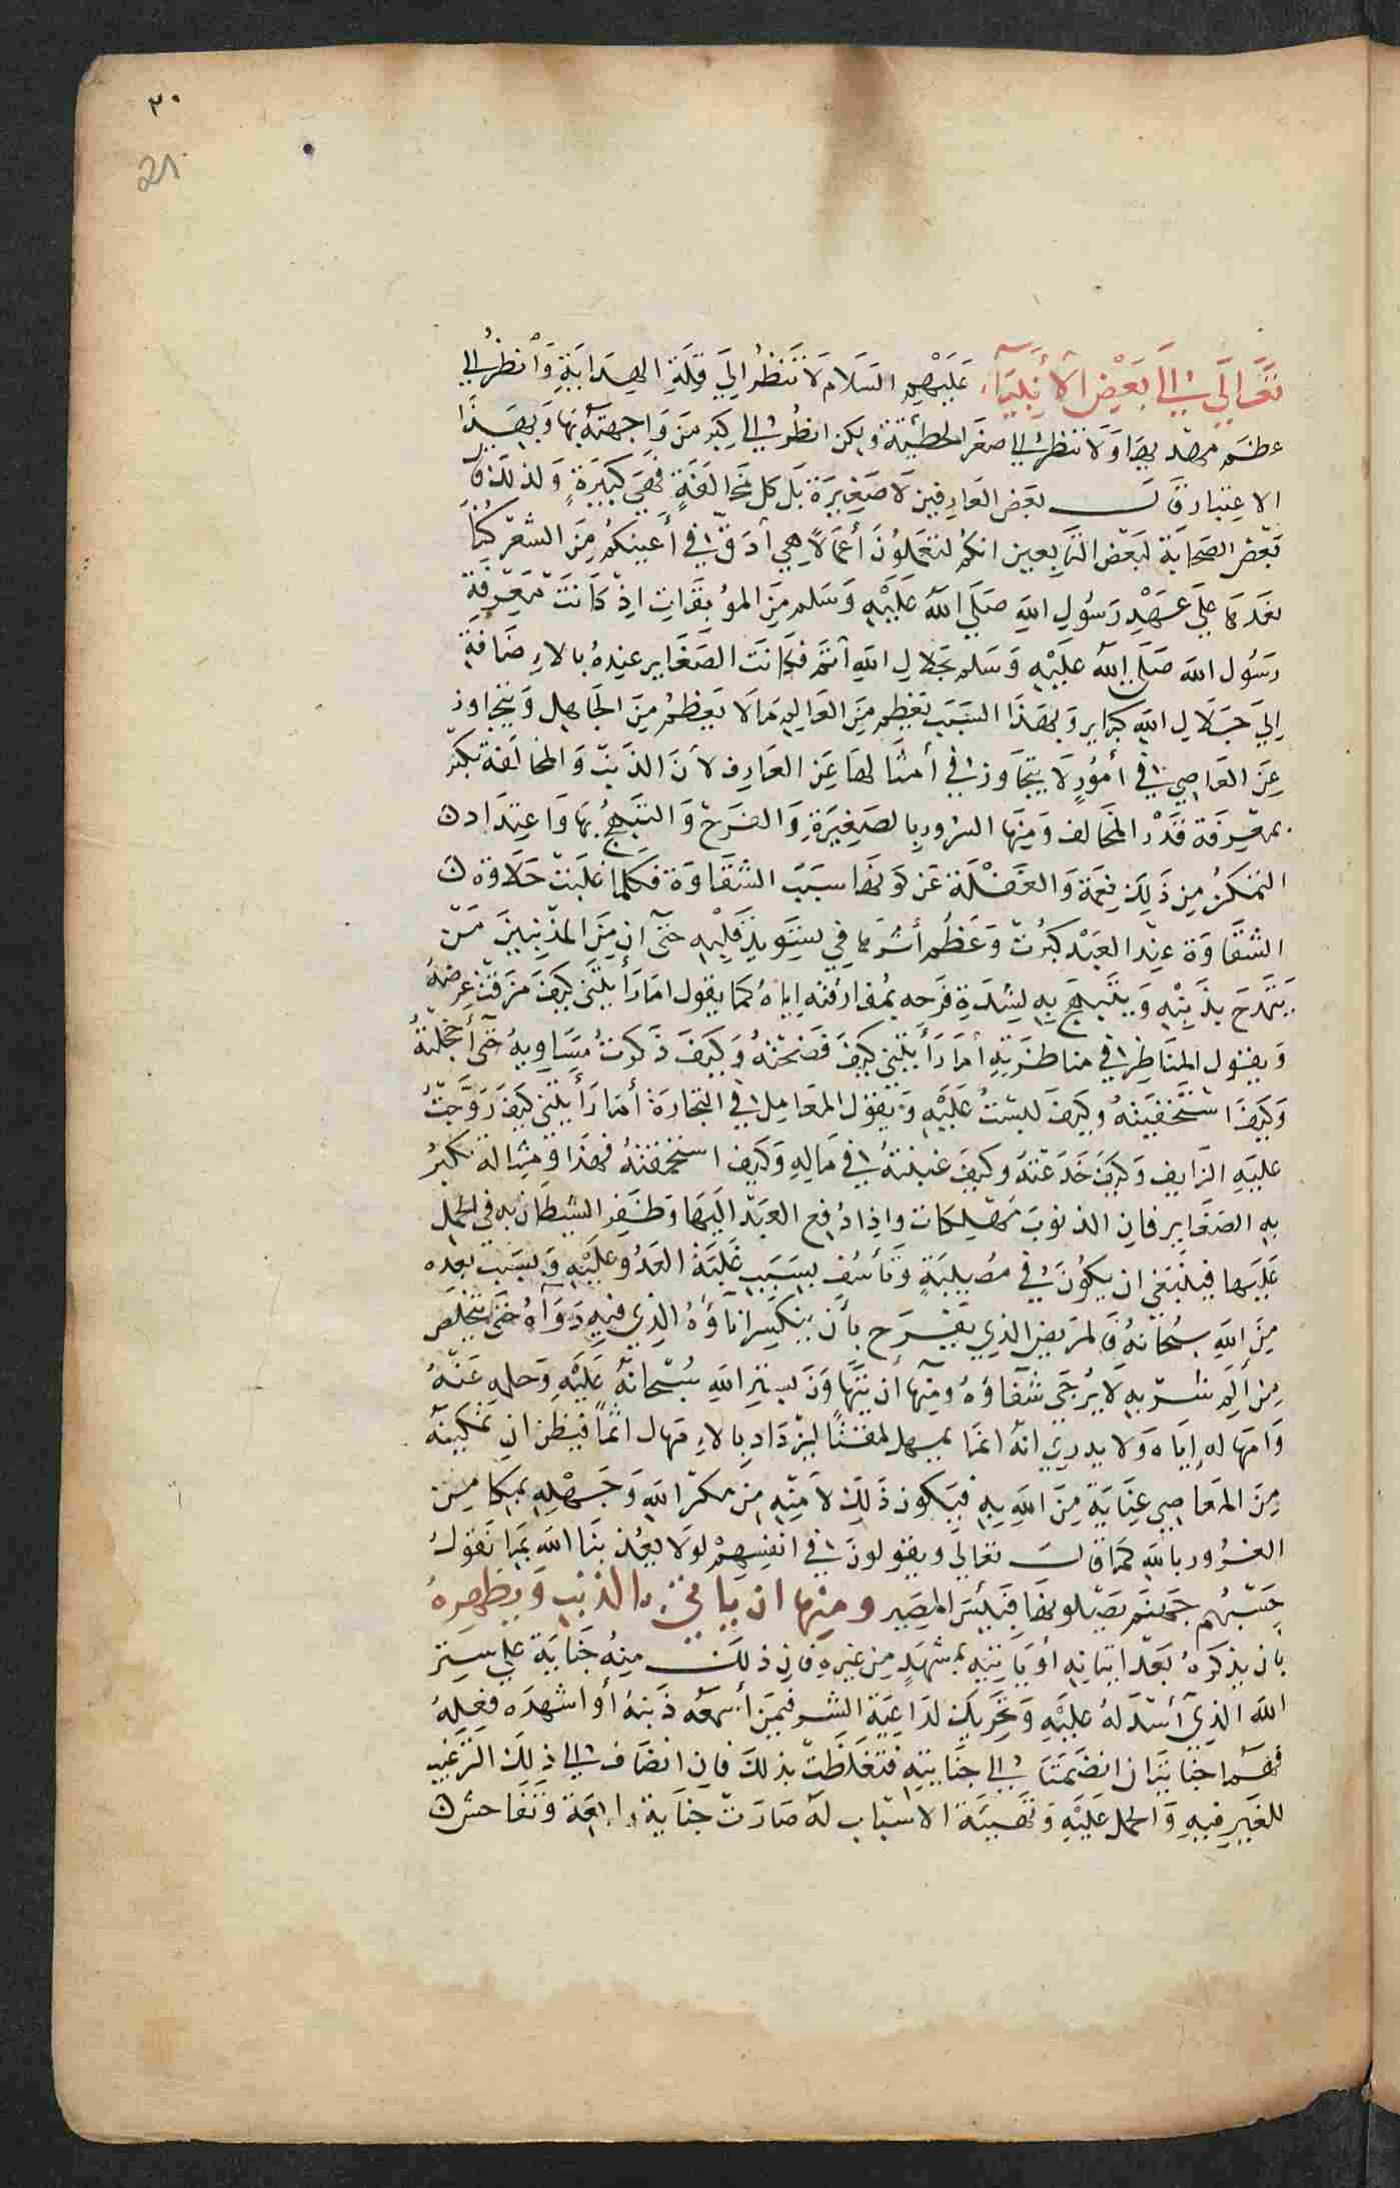 ٣٠
21
تعَالَى إلَى بَعْضِ الأَنْبِيَآء عَلَيْهِم السَلَام لَا تَنْظُر إلَي قِلَةِ الهَدَايَةِ وَانْظُر الي
عظَم مهديهَا وَلَا تنظر الي صغَر الخطيْئة ولكن انظُر الي كبْر مَن وَاجهتَهُ بهَا وَبهَذا
الاعتبار قَالَ بعَض العَارِفين لَا صَغِيرَة بَل كل مخَالفَةٍ فهيَ كَبيرَةٍ وَلذلكَ قال
بَعْض الصحَابَة لبَعْض التابعين انكُم لتَعْمَلوُنَ أعمَالاً هِي أدَقّ في أَعيُنِكُم مِنَ الشعْر كُنّا
نعَدهَا علَي عَهْدِ رَسُولِ اللهِ صَلَي اللهُ عَليْهِ وَسَلم مِنَ الموُبقَاتِ اذْ كَانَتْ مَعْرِفَةِ
رسُول الله صَلَي اللهُ عَليْهِ وَسَلم بجَلالِ اللهِ أتَمَّ فكانَت الصَغَاير عِندهُ بالاءِضَافةِ
إلي جَلَالِ اللهِ كبَاير وَبهَذَا السَبَب يَعْظم مِنَ العَالِم مَا لَا يَعْظمُ مِنَ الجَاهِل وَيتجَاوز
عَن العَاصِي في أمُورٍ لَا يتجَاوز في أمثالهَا عَن العَارِف لأنَ الذَنبْ وَالمخالفَة تكبُر
بمعْرِفَة قَدْر المخَالف وَمِنهَا السُرور بالصَغِيرَةِ وَالفَرَحْ وَالتبَجحُ بهَا وَاعتدَاد ك
التمَكنُ مِن ذَلِكَ نِعمَة وَالغَفْلَة عَن كَونهَا سبَبَ الشقَاوَة فكلما غلَبَتْ حَلَاوَة ك
الشقَاوَة عِنْد العَبْد كبُرَتْ وَعَظُم أثرهَا في تسْوِيدِ قَلْبه حَتّي انِ مِنَ المذْنبينَ مَنْ
يَتمَدحَ بذَنبْهِ وَيتبَجحَ بهِ لِشدَةِ فَرَحه بمُفارَقَتِه ايَاهُ كمَا يقول امَا رَأَيْتَني كيَفَ مَزقْتُ عِرضهُ
وَيقُول المنَاظِر في مناظَرَتِهِ أمَا رَأَيْتني كيفَ فضحْتُهُ وَكيَفَ ذكَرتُ مسَاوِيهُ حَتّي أخجَلتهُ
وَكيَفَ اسْتخَفيَتهُ وكيَفَ لبسْتُ عَليْهِ وَيقول المعَامِل في التجَارَة أمَا رَأَيْتني كيَفَ رَوّجْتُ
عليْهِ الزَايِف وَكيَفَ خَدَعْتهُ وَكيفَ غبنتهُ في مَالِهِ وَكيَف استحمَقتهُ فهَذا وَمِثَالهُ تكبُر
بهِ الصَغاير فانِ الذنوُبَ مهْلِكات واذِا دُفِع العَبْد اليْهَا وَظفَر الشيطَان بهِ في الحمل
عَليْها فينبَغي ان يكُونَ في مصُيبَةٍ وَتأسّف بِسَبَب غَلَبَة العَدُو علَيْهِ وَبسَبَب بعده
مِنَ الله سبُحَانهُ فَالمَرَيض الذي يَفْرَح بأن يَنكسِر اناؤُهُ الذي فيهِ دَوَآؤهُ حَتّي يتخَلصَ
مِن ألَم شُرْبهِ لَا يُرجَي شفَاؤهُ ومِنهَا أن يتهَاوَنَ بستر اللهِ سُبْحَانهُ عَليْهِ وَحلمهِ عَنهُ
وَامهَاله إيَاه وَلَا يدرِي انهُ انمَا يمهل لمقتا ليَزْدَاد بالاءِمهَال اثمًا فيظن ان تمكينهُ
مِنَ المعَاصِي عِنَايَة مِنَ اللهِ بهِ فيَكون ذَلِكَ لأمنِهِ مِن مكْر الله وَجَهْلِهِ بمكامِن
الغرُور بالله كمَا قالَ تعَالي وَيقولونَ في انفسِهِمْ لوْلا يعُذبنَا الله بمَا نقول
حَسْبُهم جَهنم يَصْلونهَا فَبئسَ المصَير ومِنهَا ان يَاتي بالذنب وَيظهرهُ
بأن يذكرهُ بَعْد اتيَانهِ أو يَاتيهِ بمشْهَدٍ مِن غَيرهِ فان ذلكَ مِنهُ جَنايَة عَلي سِتر
الله الذي أسْدلهُ عَليْهِ وَتحرِيك لدَاعِيَة الشر فيمَن أسمَعهُ ذَنبهُ أو اشهدَه فعْلهُ
فهمَا جنَايتَان انضَمَتَا الي جنَايتِهِ فتَغَلظَتْ بذلكَ فان انضاف الي ذلِكَ الترغيب
للغَير فيهِ وَالحمل عَليْهِ وَتهيئَة الاسبَاب لهُ صَارَتْ جنايةً رابعَة وَتفَاحش ك